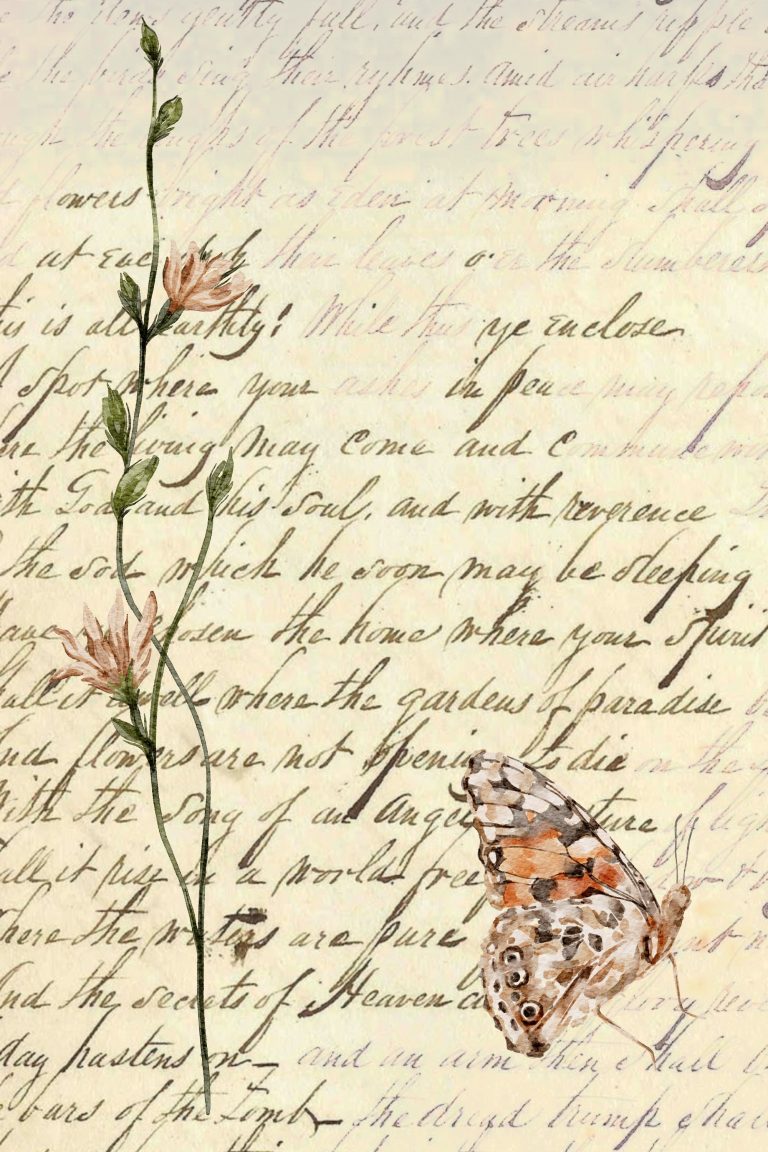 the flowers gently fall, and the streams ripple
the birds sing their ryhmes. amid air harps tha
ugh the boughs of the forest trees whispering
flowers bright as Eden at morning shall
at Each their leaves o'er the slumberers
his is all Earthly! While thus ye Enclose
spot where your ashes in peace may repo
ere the living May Come and Commune wi
ith God and his Soul, and with reverence
the sod which he soon may be sleeping
ave chosen the home where your Spirit
hall it dwell where the gardens of paradise
nd flowers are not Opening to die on the
With the Song of an Angel of ligh
all it rise in a world free
here the waters are pure
nd the secrets of Heaven
day hastens on – and an arm then shall
e bars of the Tomb – the dread trump shall